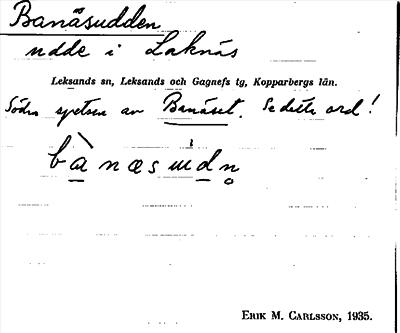 Banäsudden
udde i Laknäs
Leksands sn, Leksands och Gagnefs tg, Kopparbergs län.
Södra spetsen av Banäset. Se detta ord!
ERIK M. CARLSSON, 1935.